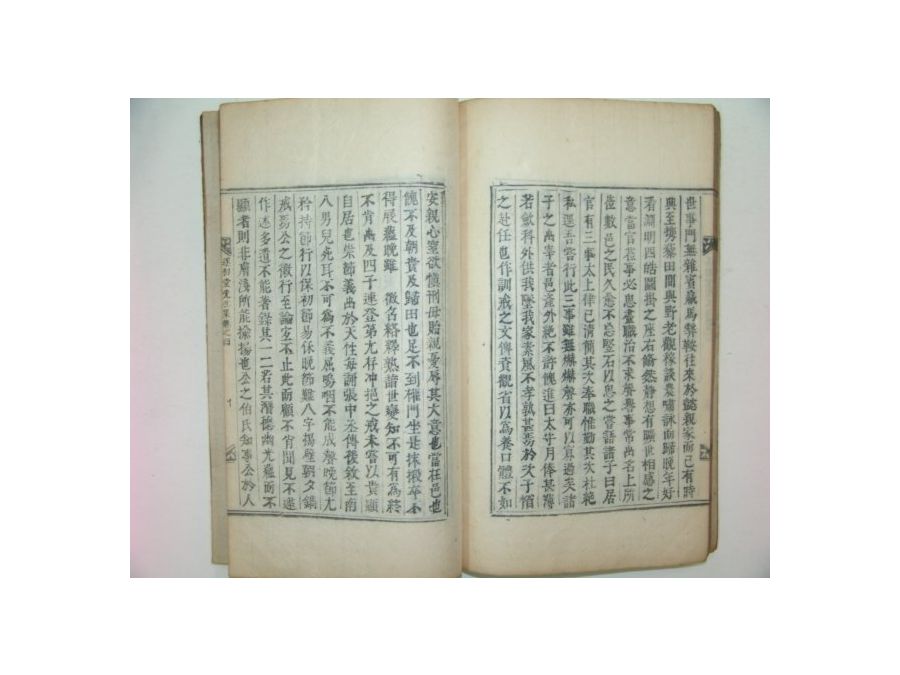 世事門無雜賓藏馬弊鞍往來於懿親家而已有時
興至携藜田間與野老觀稼談農嘯詠而歸晩年好
看淵明四皓圖掛之座右翛然靜想有曠世相感之
意當官莅事必思盡職治不求聲譽事常出名上所
莅數邑之民久愈不忘竪石以思之嘗語諸子曰居
官有三事太上律己淸簡其次奉職惟勤其次杜絶
私逕吾嘗行此三事雖無爀爀聲亦可以寡過矣諸
子之出宰者邑產外絶不許饋進曰太守月俸甚薄
若斂科外供我墜我家素風不孝孰甚焉於次子
之赴任也作訓戒之文俾資觀省以爲養口體不如
安親心寡欲愼刑毋貽親憂辱其大意也當在邑也
餽不及朝貴及歸田也足不到權門坐是抹摋卒不
得展蘊晩雖 微名絡繹熟諳世變知不可有爲終
不肯出及四子連登第尤存冲挹之戒未嘗以貴顯
自居也崇節義出於天性每誦張中丞傳後敘至南
八男兒死耳不可爲不義屈嗚咽不能成聲晩節尤
矜持節行以保初節易保晩節難八字揭壁朝夕鏡
戒焉公之徽行至論定不止此而顧不肖聞見不逮
作述多遺不能者錄其一二若其潛德幽光蘊而不
顯者則非膚淺所能揄揚也公之伯氏知事公於人